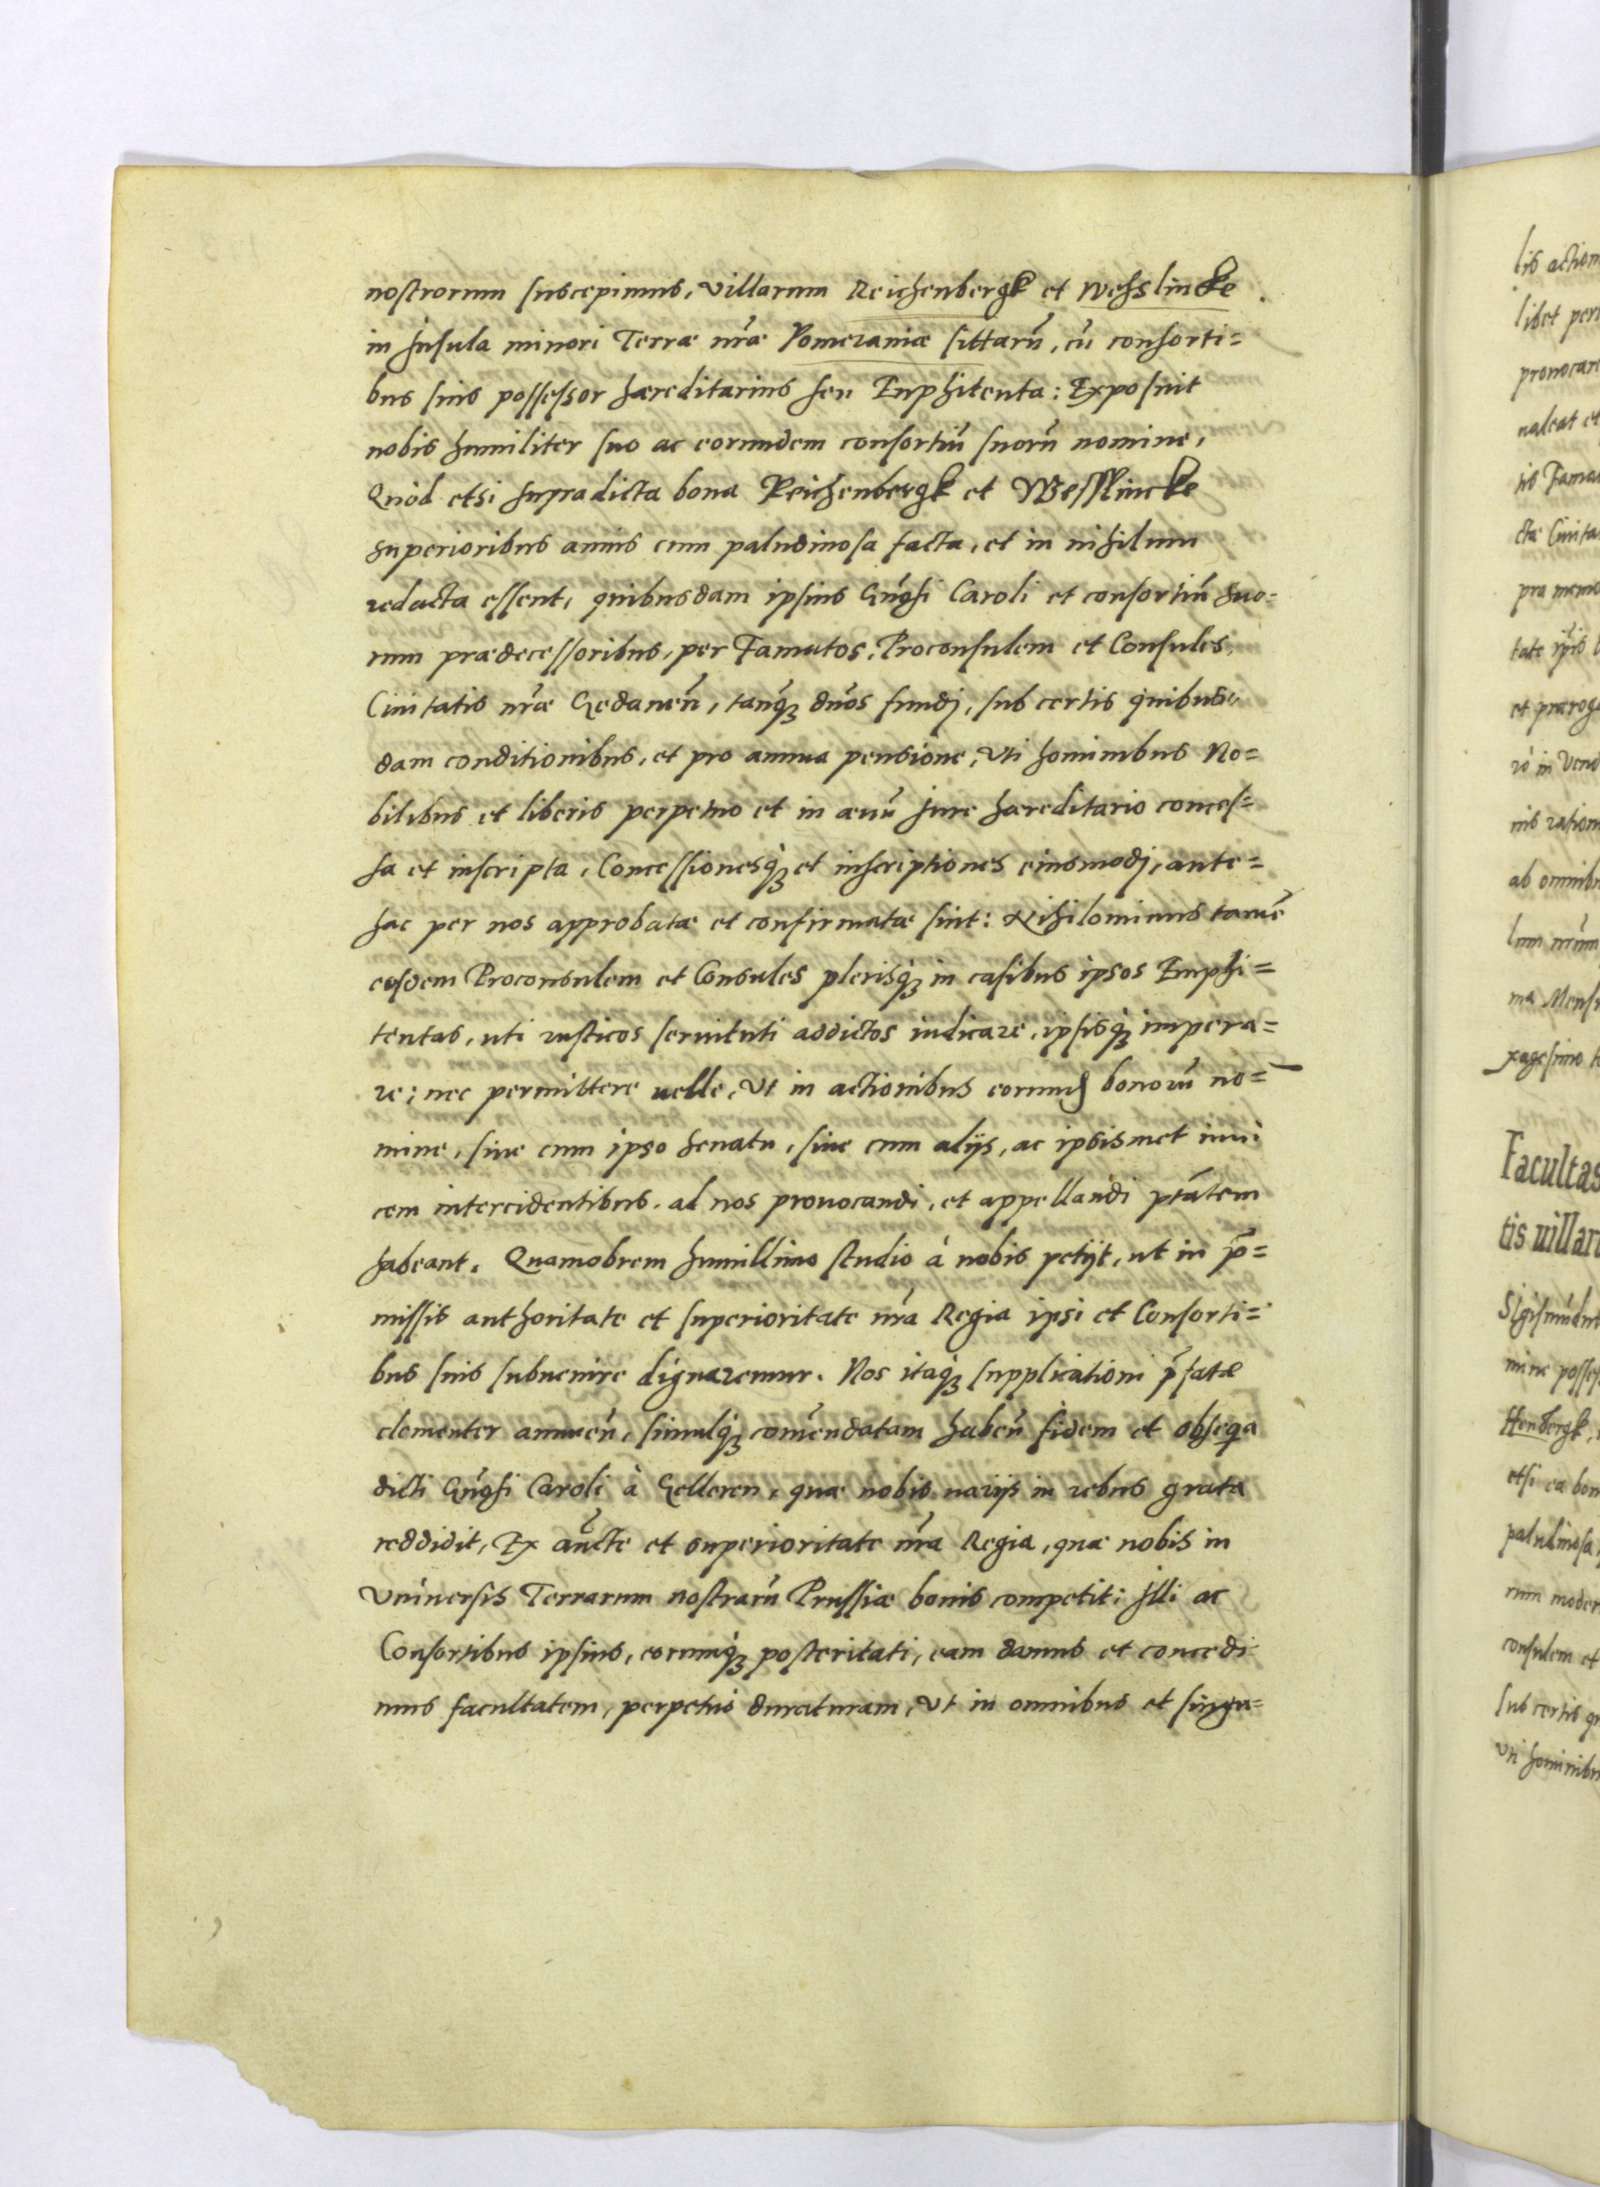 nostrorum suscepimus, villarum Reichenbergk et Wehslincke
in Insula minori Terræ nr̃æ Pomeraniæ sittarũ, cũ consorti=
bus suis possessor hæreditarius seu Enphitenta: Exposuit
nobis humiliter suo ac eorundem consortiũ suorũ nomine,
Quòd etsi supradicta bona Reichenbergk et Wesslincke
superioribus annis cum paludinosa facta, et in nihilum
redacta essent, quibusdam ipsius Gũghi Caroli et consortiũ suo=
rum prædecessoribus, per Famatos, Proconsulem et Consules
Ciuitatis nr̃æ Gedaneñ, tanq̃ȝ dños fundj, sub certis quibus=
dam conditionibus, et pro annua pensione, vti hominibus No=
bilibus et liberis perpetuo et in æuũ jure hæreditario conces=
sa et inscripta, Concessionesq́ȝ et inscriptiones eiusmodj, ante=
hac per nos approbatæ et confirmatæ sint: Nihilominus tamẽ
eosdem Proconsulem et Consules plerisq́ȝ in casibus ipsos Emphi=
tentas, uti rusticos seruituti addictos iudicare, ipsisq́ȝ impera=
re; nec permittere uelle, vt in actionibus eorund bonorũ no=
mine, siue cum ipso senatu, siue cum alijs, ac ipsismet inui
cem intercidentibus, ad nos prouocandi, et appellandi ptãtem
habeant. Quamobrem humillimo studio à nobis petijt, ut in p̃=
missis authoritate et superioritate nr̃a Regia ipsi et Consorti=
bus suis subuenire dignaremur. Nos itaq́ȝ supplicationi p̃fatæ
clementer annueñ, simulq́ȝ com̃endatam habeñ fidem et obseqa
dicti Gũghi Caroli à Gelleren, quæ nobis uarijs in rebus grata
reddidit, Ex aũcte et superioritate nr̃a Regia, quæ nobis in
Vniuersis Terrarum nostrarũ Prussiæ bonis competit: Illi ac
Consortibus ipsius, eorumq́ȝ posteritati, eam damus et concedi
mus facultatem, perpetuò duraturam, vt in omnibus et singu=
lis action
libet per
ualeat et
Facultas
tis uillar
Sigismũdu
mine posse
etsi ea bon
paludinosa
rum moder
consulem et
sub certis
vti hominib